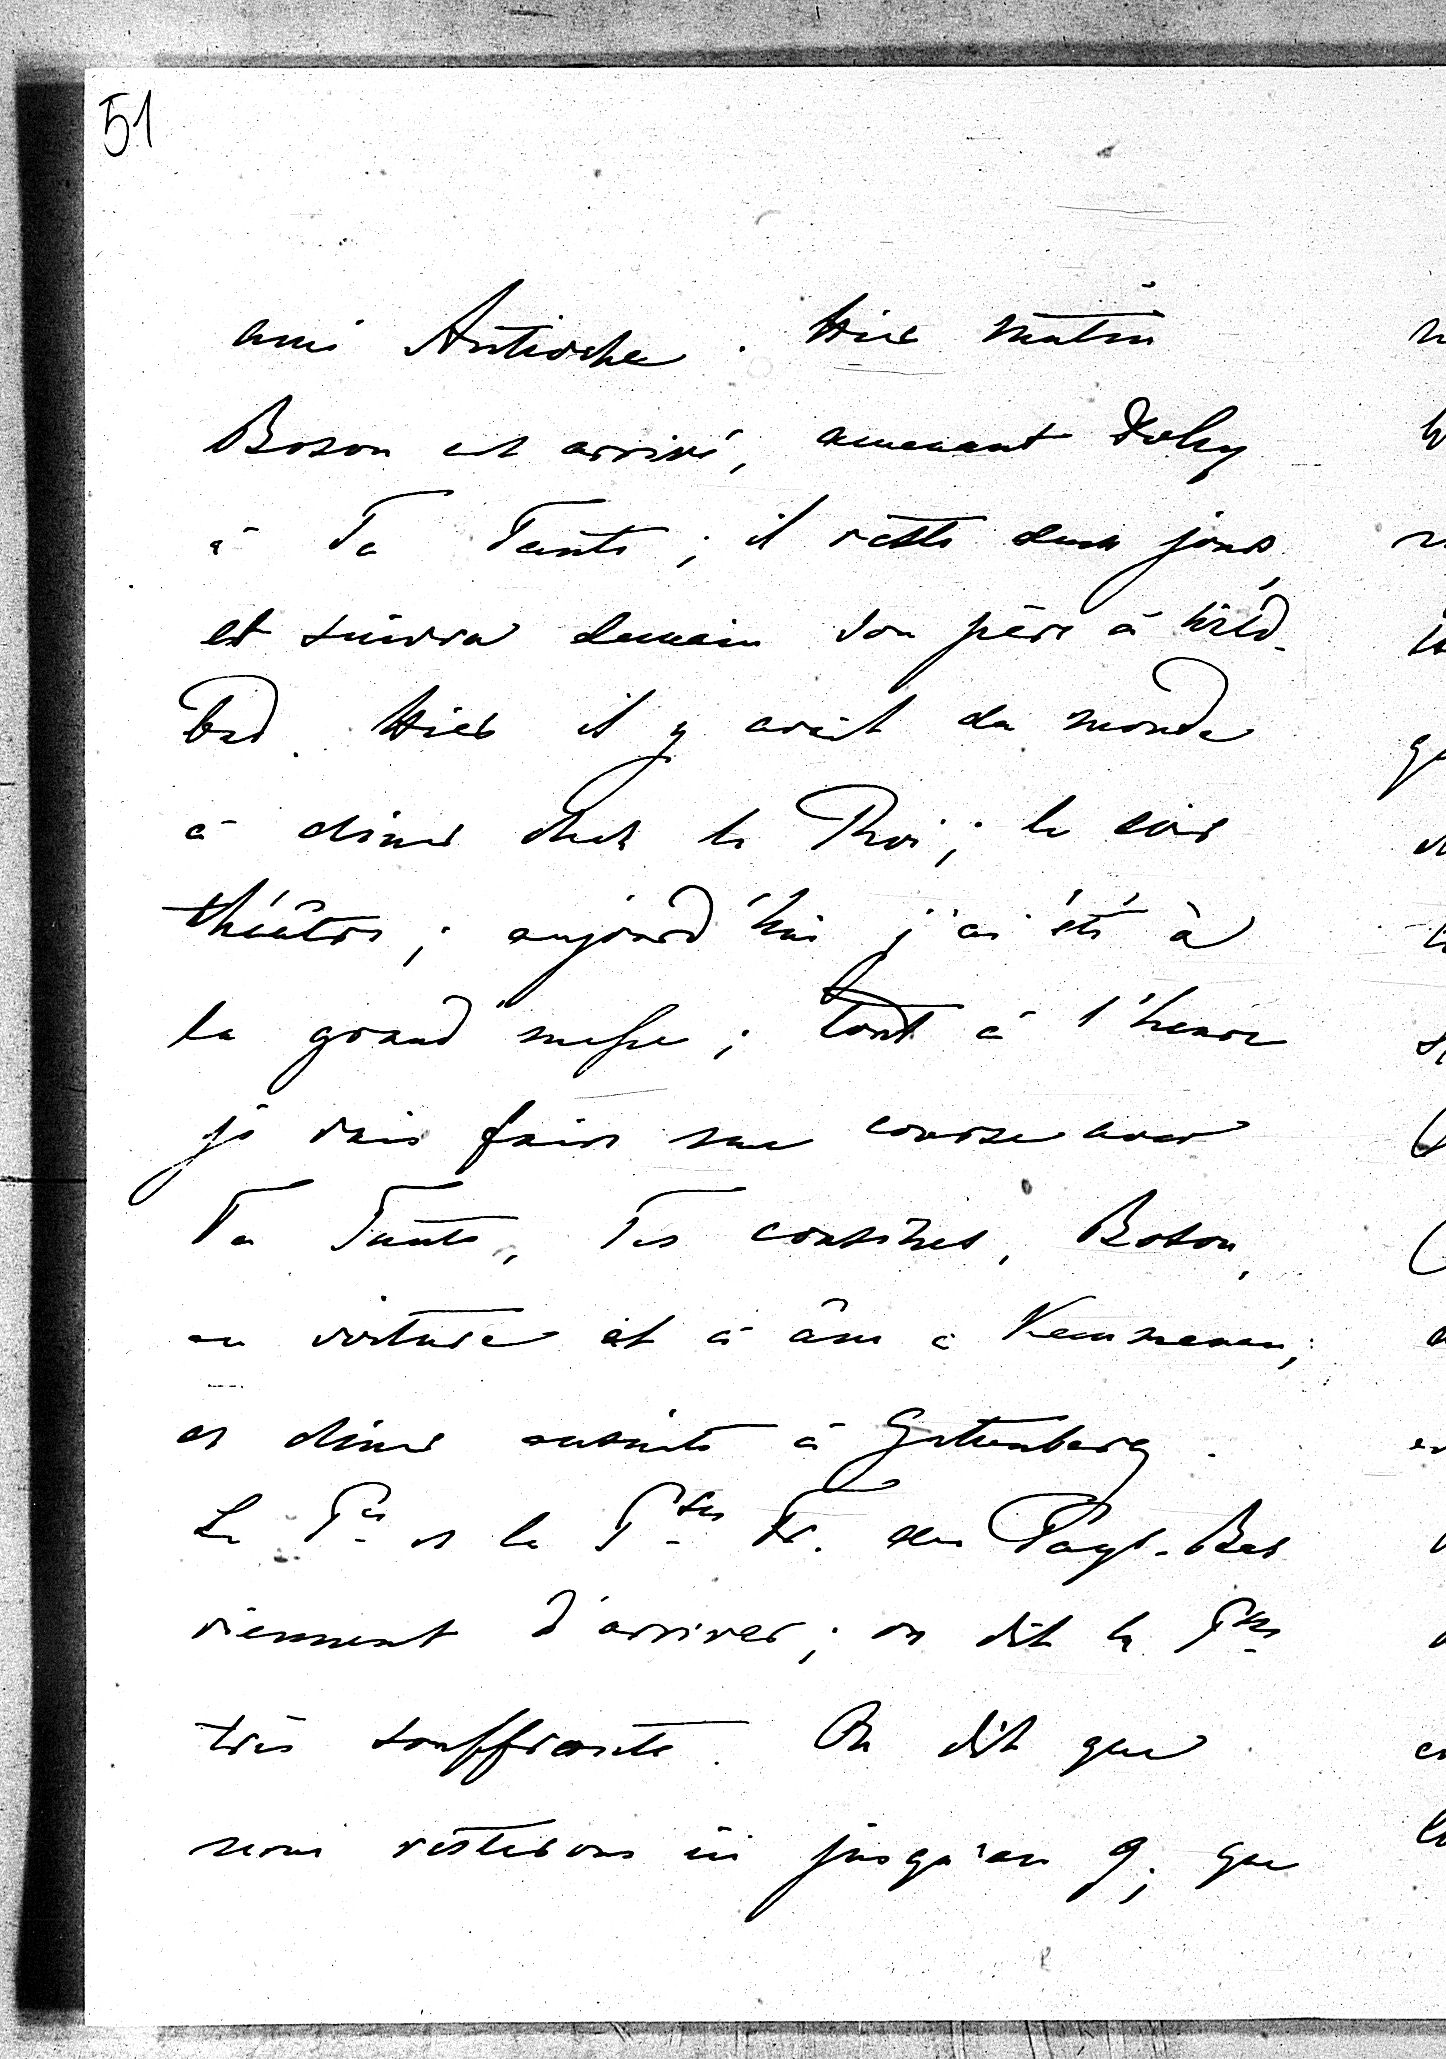 51
ami Antioche. Hier matin
Boson est arrivé, amenant Dolly
à Ta Tante; il reste deux jours,
et suivra demain son père à Wild-
bad. Hier il y avait du monde
à dîner chez le Roi; le soir
théâtre; aujourd'hui j'ai été à
la grand'messe; tout à l'heure
je vais faire une course avec
Ta Tante, Tes cousines, Boson,
en voiture et à âne à Kemmenau;
et dîner ensuite à Gutenberg.
Le Pce et la Psse Fr. des Pays-Bas
viennent d'arriver; on dit la Psse
très souffrante. On dit que
nous resterons ici jusqu'au 9; que